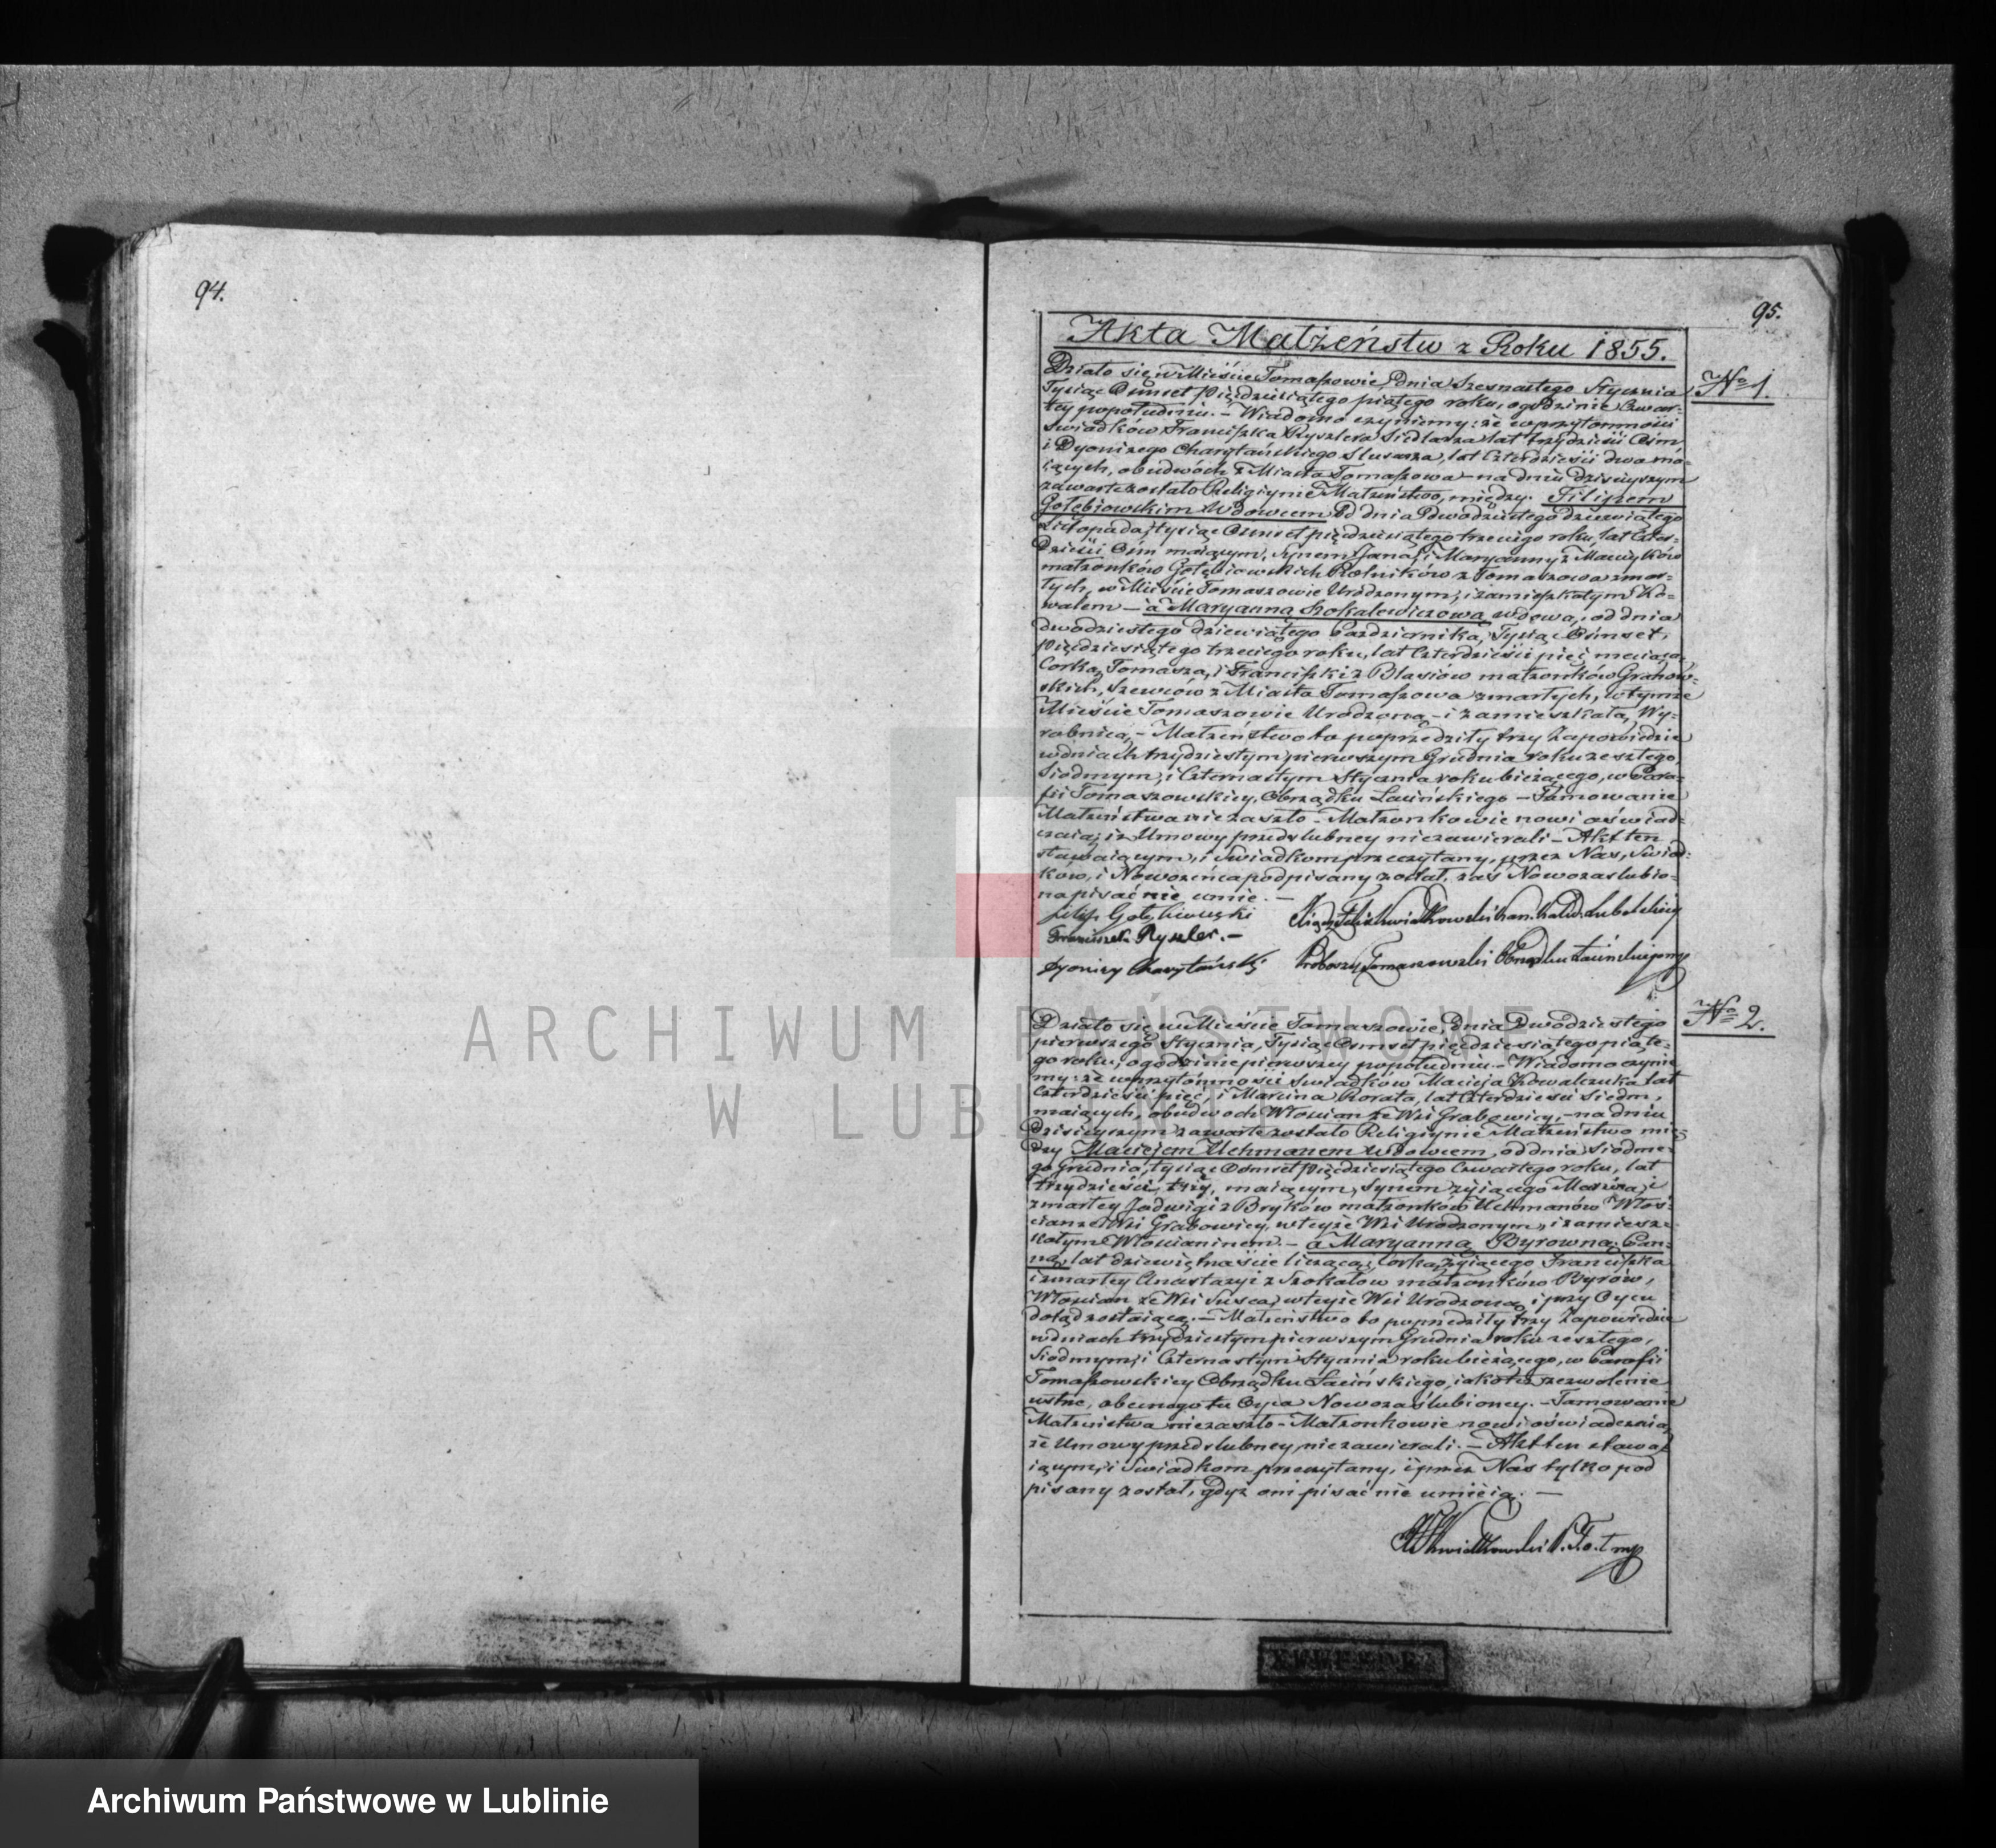 94.
95.
Akta Małżeństw z Roku 1855.
No 1.
Działo się w Mieście Tomaszowie, dnia szesnastego Stycznia
Tysiąc Ośmset pięćdziesiątego piątego roku, o godzinie czwar-
tey popołudniu. – Wiadomo czyniemy: że w przytomności
Swiadków Franciszka Ryszlera Siedlarza lat trzydzieści Ośm
i Dyonizego Charytańskiego Slusarza, lat Czterdzieści dwa ma-
iących, obudwóch z Miasta Tomaszowa na dniu dzisieyszym
zawarte zostało Religiynie Małżeństwo, między Filipem
Gołębiowskim Wdowcem od dnia Dwódziestego dziewiątego
Listopada, tysiąc Ośmset pięćdziesiątego trzeciego roku, lat Czter-
dzieści Ośm maiącym, Synem Jana, i Maryanny z
małżonków Gołębiowskich Rolników z Tomaszowa zmar-
łych, w Mieście Tomaszowie Urodzonym, i zamieszkałym Ko-
walem – a Maryanną Szokalewiczową wdową, od dnia
dwodziestego dziewiątego Października, Tysiąc Ośmset,
pięćdziesiątego trzeciego roku, lat Czterdzieści pięć maiącą,
Corką Tomasza, i Franciszki z Blasiów małżonków
skich, Szewców z Miasta Tomaszowa zmarłych, w tymże
Mieście Tomaszowie Urodzoną – i zamieszkałą, Wy-
robnicą, – Małżeństwo to poprzedziły trzy Zapowiedzie
w dniach trzydziestym pierwszym Grudnia roku zeszłego,
Siodmym, i Czternastym Stycznia roku bieżącego, w Para-
fii Tomaszowskiey, Obrządku Łacińskiego – Tamowanie
Małżeństwa nie zaszło – Małżonkowie nowi oświad-
czaią; iż Umowy przedslubney nie zawierali – Akt ten
stawaiącym, i Swiadkom przeczytany, przez Nas, Swiad-
ków, i Nowożeńca podpisany został, zaś Nowozaslubio-
na pisać nie umie. –
Filip Gołębiowski
Kwiatkowski Kan. Lubelskiey
Franciszek Ryszler. –
Dyonizy Charytański
Proboszcz Tomaszowski Obrządku Łacińskiego mp
No 2.
Działo się w Mieście Tomaszowie, dnia Dwódziestego
pierwszego Stycznia, Tysiąc Ośmset pięćdziesiątego piąte-
go roku, o godzinie pierwszey popołudniu – Wiadomo czynie-
my: że w przytomności swiadków Macieja Kowalczuka lat
Czterdzieści pięć, i Marcina Korata, lat Czterdzieści Siedm,
maiących, obudwoch Włościan ze Wsi Grabowicy, – na dniu
dzisieyszym zawarte zostało Religiynie Małżeństwo mię-
dzy Maciejem Uchmanem wdowcem, od dnia Siodme-
go Grudnia, tysiąc Ośmset pięćdziesiątego Czwartego roku, lat
trzydzieści trzy, maiącym, Synem żyiącego i
zmarłey Jadwigi z Bryków małżonków Uchmanów Włos-
cian ze Wsi Grabowicy, w teyże Wsi Urodzonym, i zamiesz-
kałym Włościaninem. – a Maryanną Byrowną; Pan-
ną, lat dziewiętnaście liczącą, Corką, żyiącego Franciszka
i zmarłey Anastazyi z Szokałow małżonków Byrów,
Włościan ze Wsi Susca, w teyże Wsi Urodzoną, i przy Oycu
dotąd zostaiącą. – Małżeństwo to poprzedziły trzy Zapowiedzie
w dniach trzydziestym pierwszym Grudnia roku zeszłego,
Siodmym, i Czternastym Stycznia roku bieżącego, w Parafii
Tomaszowskiey Obrządku Łacińskiego, iakoteż zezwolenie
ustne, obecnego tu Oyca Nowozaślubioney. – Tamowanie
Małżeństwa nie zaszło – Małżonkowie nowi oświadczaią,
że Umowy przedslubney nie zawierali. – Akt ten stawa-
iącym, i Swiadkom przeczytany, i przez Nas tylko pod
pisany został, gdyż oni pisać nie umieią. –
Kwiatkowski P. To. mp
ARCHIWUM PAŃSTWOWE
W LUBLINIE
Archiwum Państwowe w Lublinie